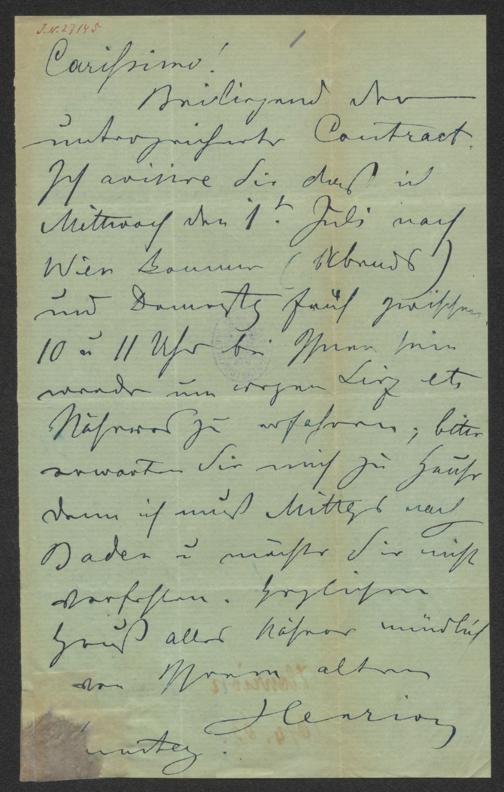 J.N. 27145
Carissimo!
Beiliegend der
unterzeichnete Contract.
Ich avisire Sie daß ich
Mittwoch den 1t. Juli nach
Wien komme (Abends)
und Donnerstg früh zwischen
10 u 11 Uhr bei Ihnen sein
werde um wegen Linz etc
Näheres zu erfahren; bitte
erwarten Sie mich zu Hause
denn ich muß Mittags nach
Baden u möchte Sie nicht
verfehlen. Herzlichen
Gruß alles Nähere mündlich
von Ihrem alten
Henrion